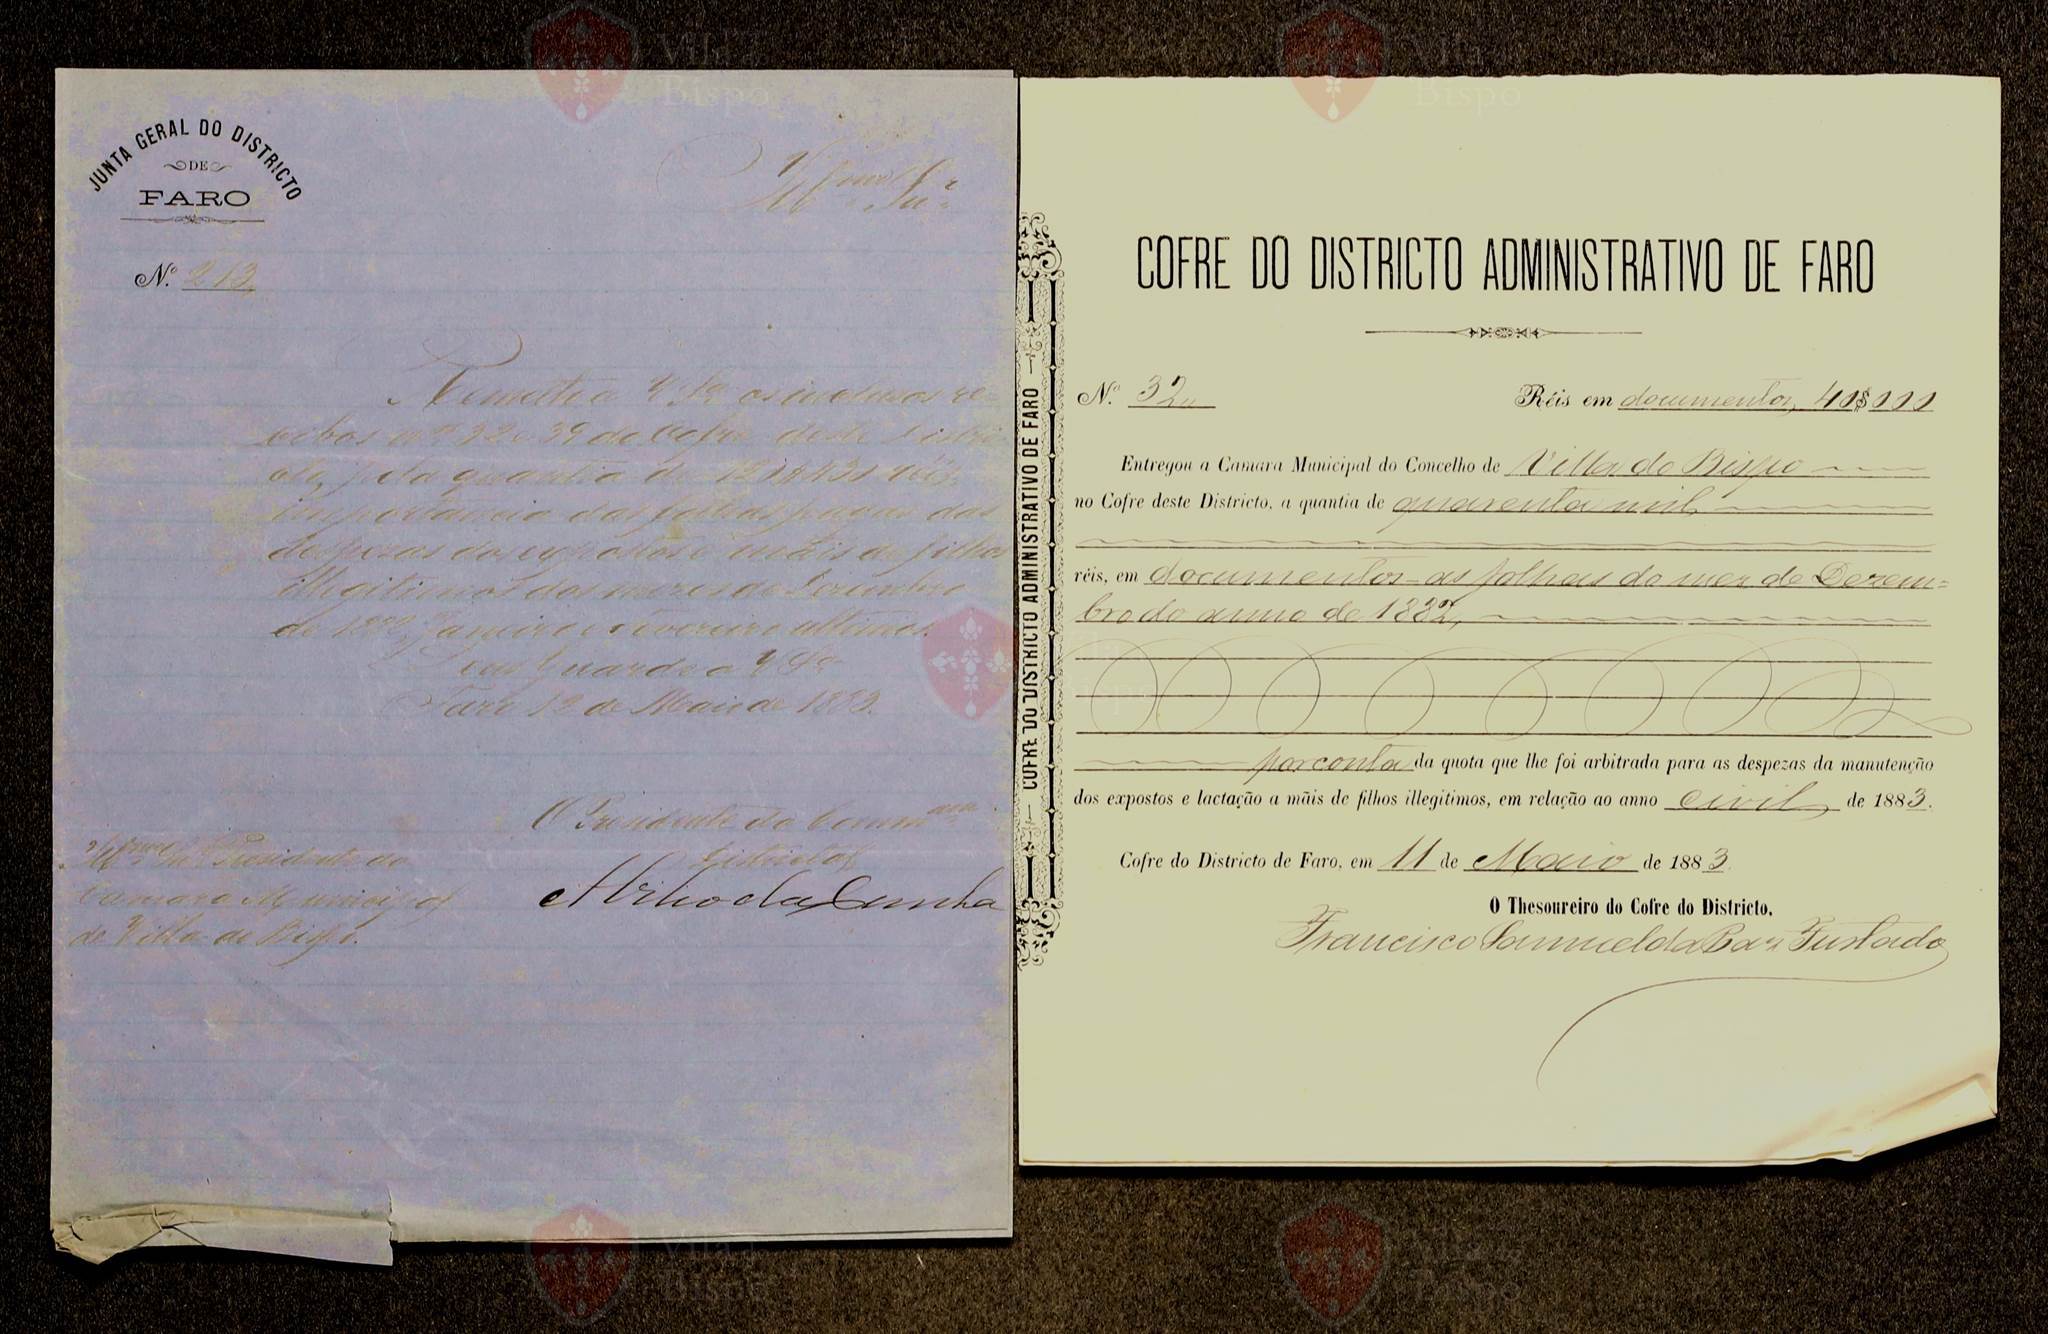 JUNTA GERAL DO DISTRICTO
DE
FARO
N.º 213
Ill.mo Sr.
Remetto a V. S.ª os inclusos re-
cibos n.os 32 e 39 do Cofre deste Distri-
cto, pela quantia de réis
importancia das folhas pagas das
despezas dos expostos e mãis de filhos
illegitimos dos mezes de Dezembro
de 1882, Janeiro e Fevereiro ultimos.
Deus Guarde a V. S.ª
Faro 12 de Maio de 1883.
O Presidente da Comm.
Districtal
da Cunha
Ill.mo Sr. Presidente da
Camara Municipal
de Villa do Bispo.
COFRE DO DISTRICTO ADMINISTRATIVO DE FARO
COFRE DO DISTRICTO ADMINISTRATIVO DE FARO
N.º 32
Réis em documentos, 40$000
Entregou a Camara Municipal do Concelho de Villa do Bispo
no Cofre deste Districto, a quantia de quarenta mil
réis, em documentos - as folhas do mez de Dezem=
bro do anno de 1882,
por conta da quota que lhe foi arbitrada para as despezas da manutenção
dos expostos e lactação a mãis de filhos illegitimos, em relação ao anno civil de 1883.
Cofre do Districto de Faro, em 11 de Maio de 1883.
O Thesoureiro do Cofre do Districto,
Francisco Samuel da Paz Furtado
Vila do
Bispo